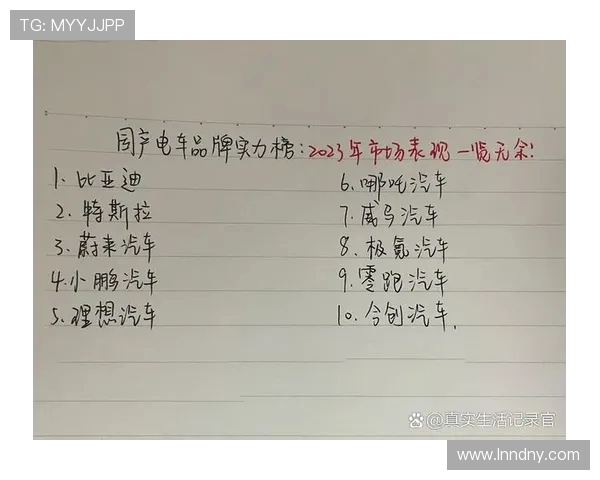 TG: MYYJJPP
国产电车品牌实力榜:2023年市场表现一览无余!
1.比亚迪
2.特斯拉
3.蔚来汽车
4.小鹏汽车
5.理想汽车
6.哪吒汽车
7.威马汽车
8.极氪汽车
9.零跑汽车
10.合创汽车.
@真实生活记录官
www.lnndny.com